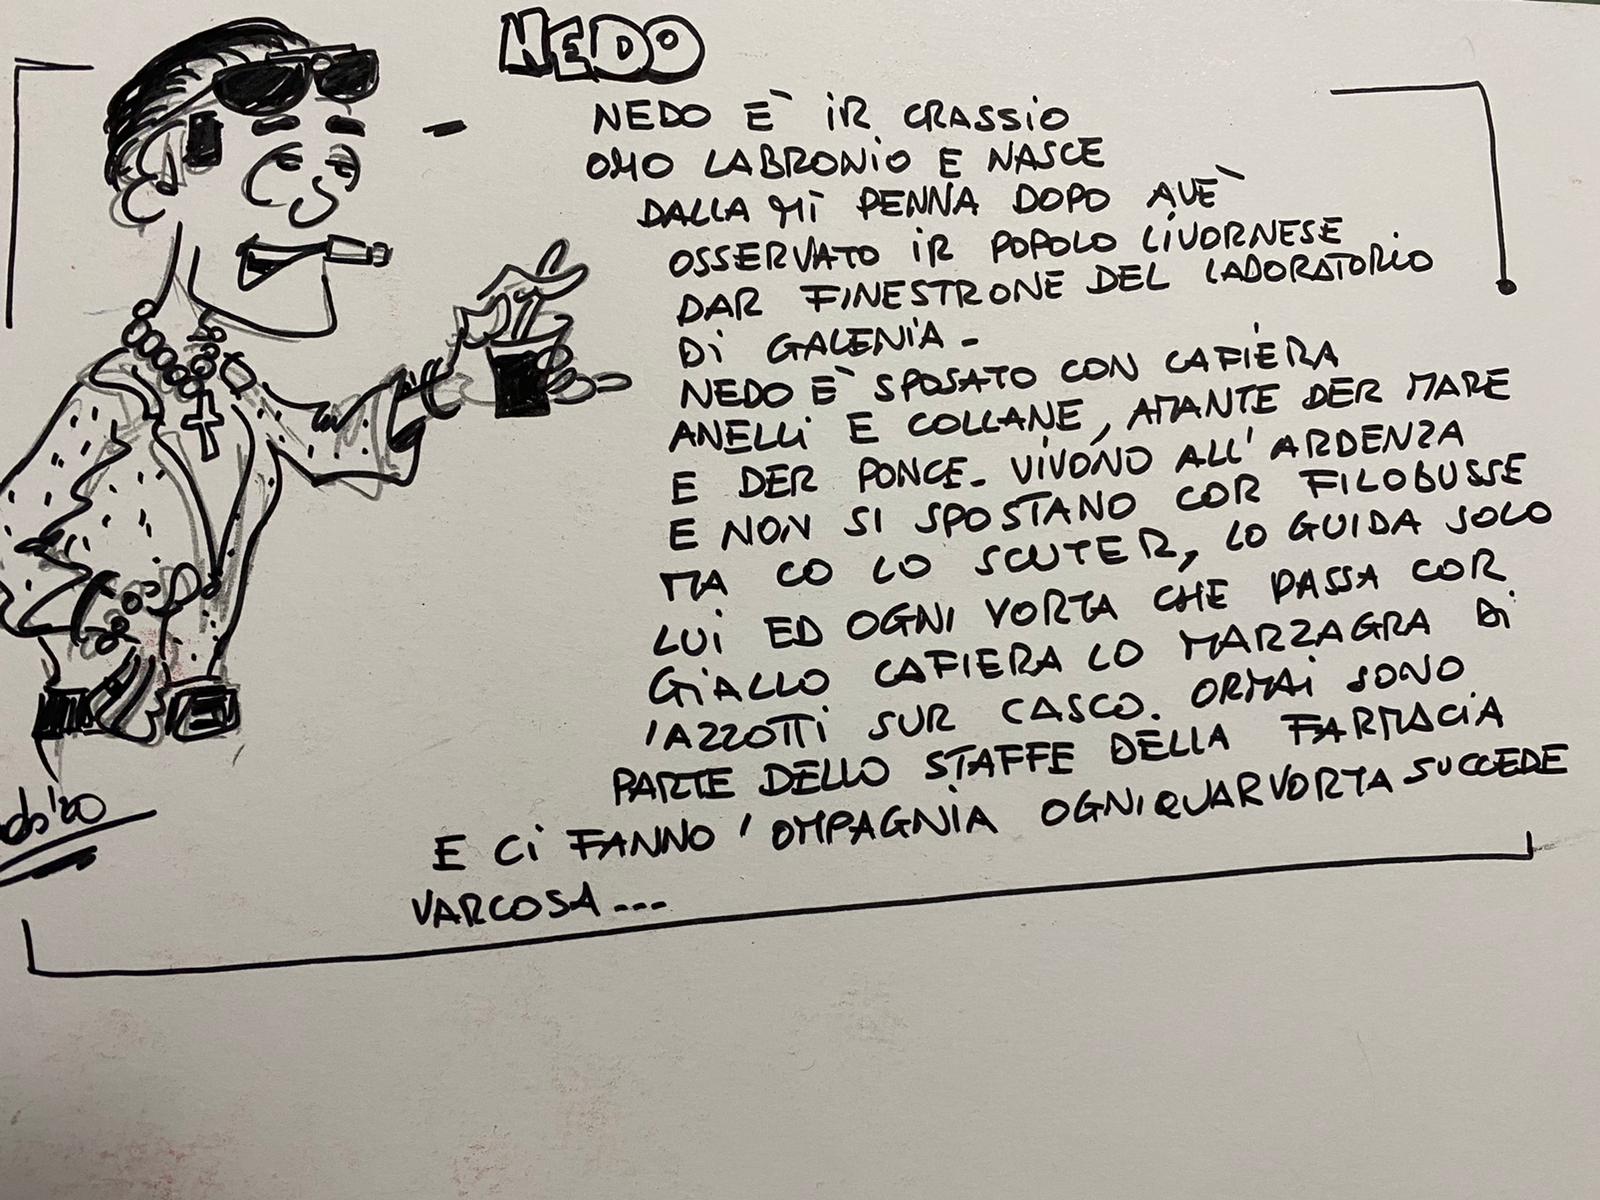 NEDO
NEDO E` IR CRASSIO
OMO LABRONIO E NASCE
DALLA MI PENNA DOPO AVE`
OSSERVATO IR POPOLO LIVORNESE
DAR FINESTRONE DEL LABORATORIO
DI GALENIA -
NEDO E` SPOSATO CON CAFIERA
ANELLI E COLLANE, AMANTE DER MARE
E DER PONCE. VIVONO ALL'ARDENZA
E NON SI SPOSTANO COR FILOBUSSE
MA CO LO SCUTER, LO GUIDA SOLO
LUI ED OGNI VORTA CHE PASSA COR
GIALLO CAFIERA LO MARZAGRA DI
'AZZOTTI SUR CASCO. ORMAI SONO
PARTE DELLO STAFFE DELLA FARMACIA
E CI FANNO 'OMPAGNIA OGNIQUARVORTA SUCCEDE
VARCOSA---